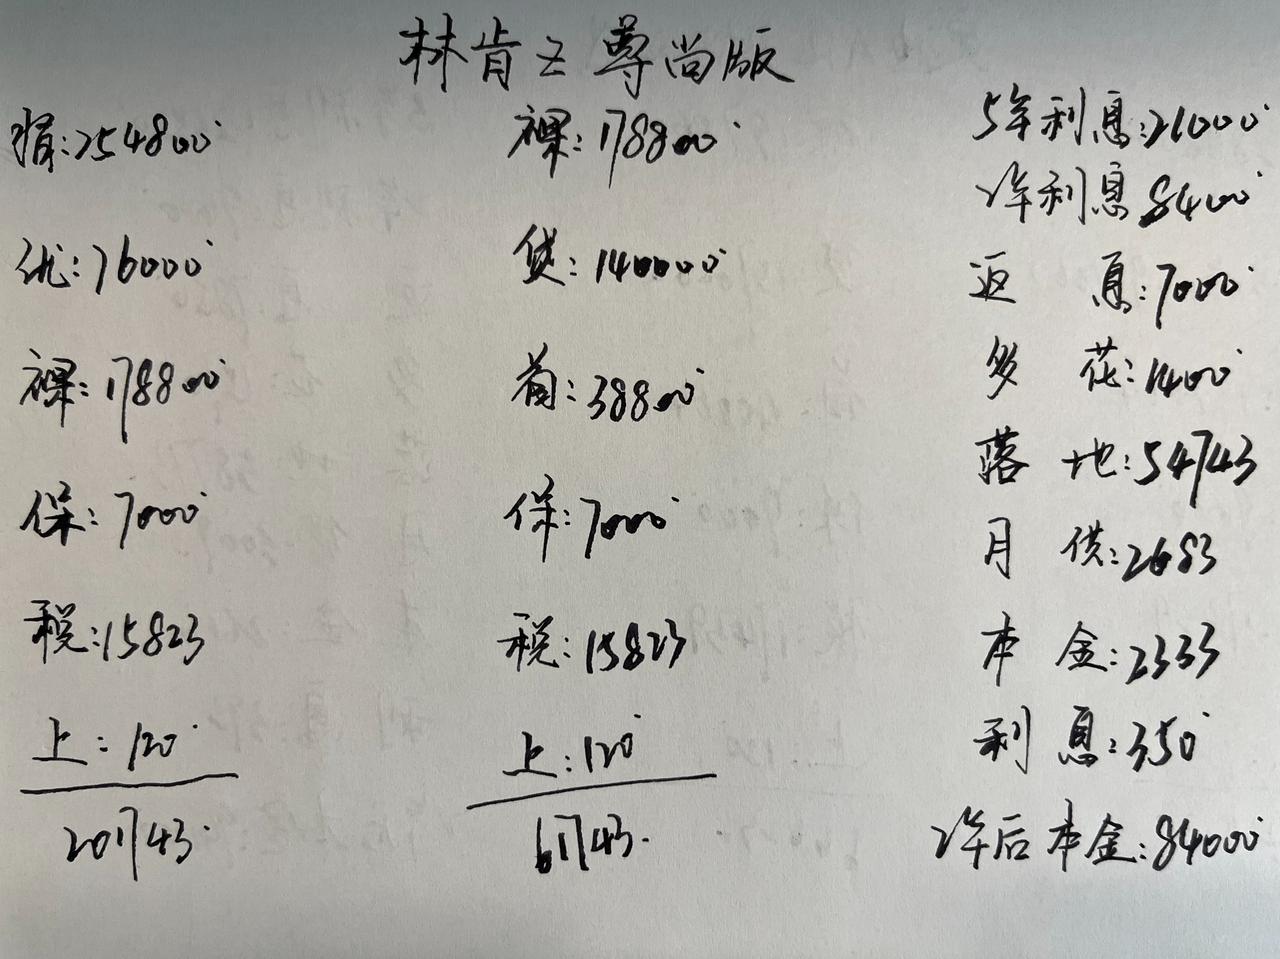 林肯Z尊尚版
指:254800
优:76000
裸:178800
保:7000
税:15823
上:120
201743.
裸:178800
贷:140000
首:38800
保:7000
税:15823
上:120
61743.
5年利息:21000
2年利息8400
返息:7000
多花:1400
落地:54743
月供:2683
本金:2333
利息:350
2年后本金:84000